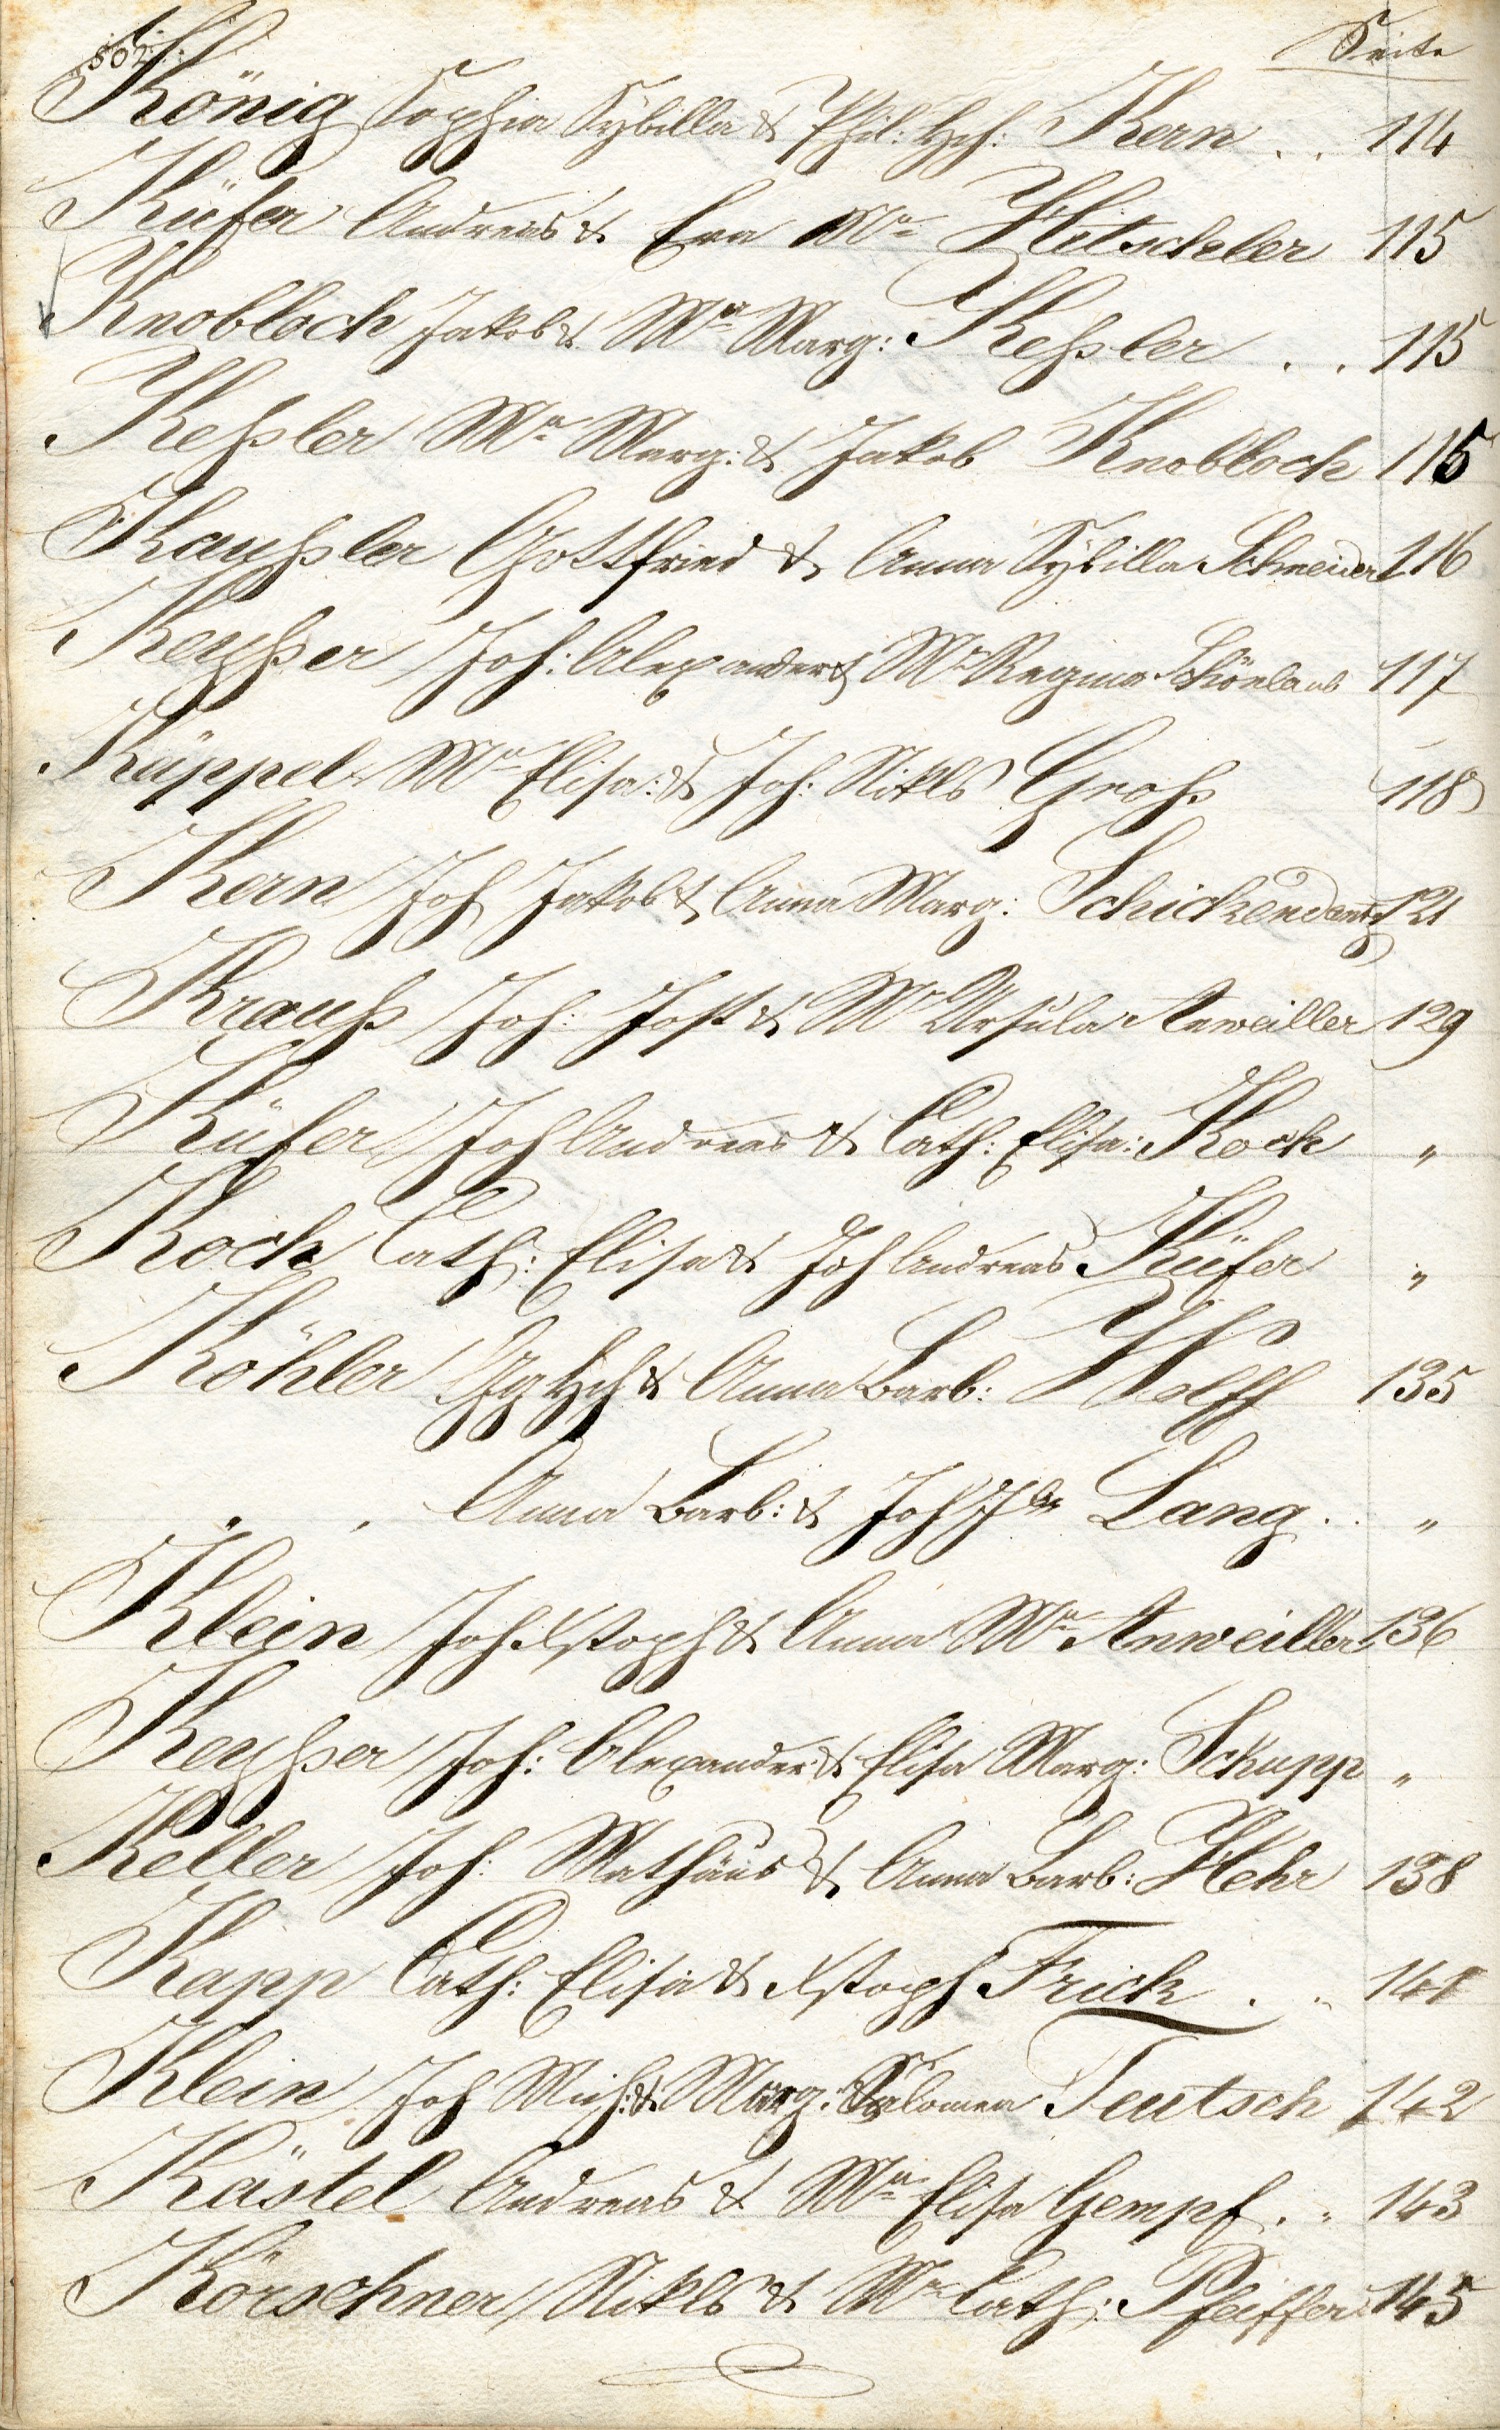 502.
Seite
König Sophia Sybilla & Phil: Hch: Kern . . 114
Küfer Andreas & Eva Ma Hitschler 115
Knobloch Jakob & Ma Marg: Keßler . . 115
Keßler Ma Marg: & Jakob Knobloch 115
Kaußler Gottfried & Anna Sybilla Schneider 116
Keyßer Joh: Alexander & Ma Regina Schönlaub 117
Küppel Ma Elisa: & Joh: Nikls Groß 118
Kern Joh Jakob & Anna Marg: Schickendantz 121
Krauß Joh: Jost & Ma Ursula Anweiller 129
Küfer Joh Andreas & Cath: Elisa: Kock "
Koch Cath: Elisa & Joh Andreas Küfer "
Köhler Gg Hch & Anna Barb: Wolff 135
" " Anna Barb: & Joh Lang . . "
Klein Joh Xstoph & Anna Ma Anweiller 136
Keyßer Joh: Alexander & Elisa Marg: Schupp "
Keller Joh: Mathäus & Anna Barb: Hehr 138
Kapp Cath: Elisa & Xstoph Frick . . 141
Klein Joh Mich: & Marg: Salomea Teutsch 142
Kästel Andreas & Ma Elisa Gempf . . 143
Körschner Nikls & Ma Cath: Pfeiffer 145